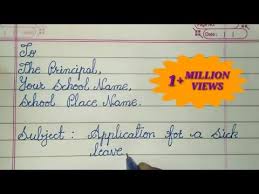 To
The Principal,
Your School Name,
School Place Name.
Subject: Application for a Sick
leave,
1+ MILLION
VIEWS